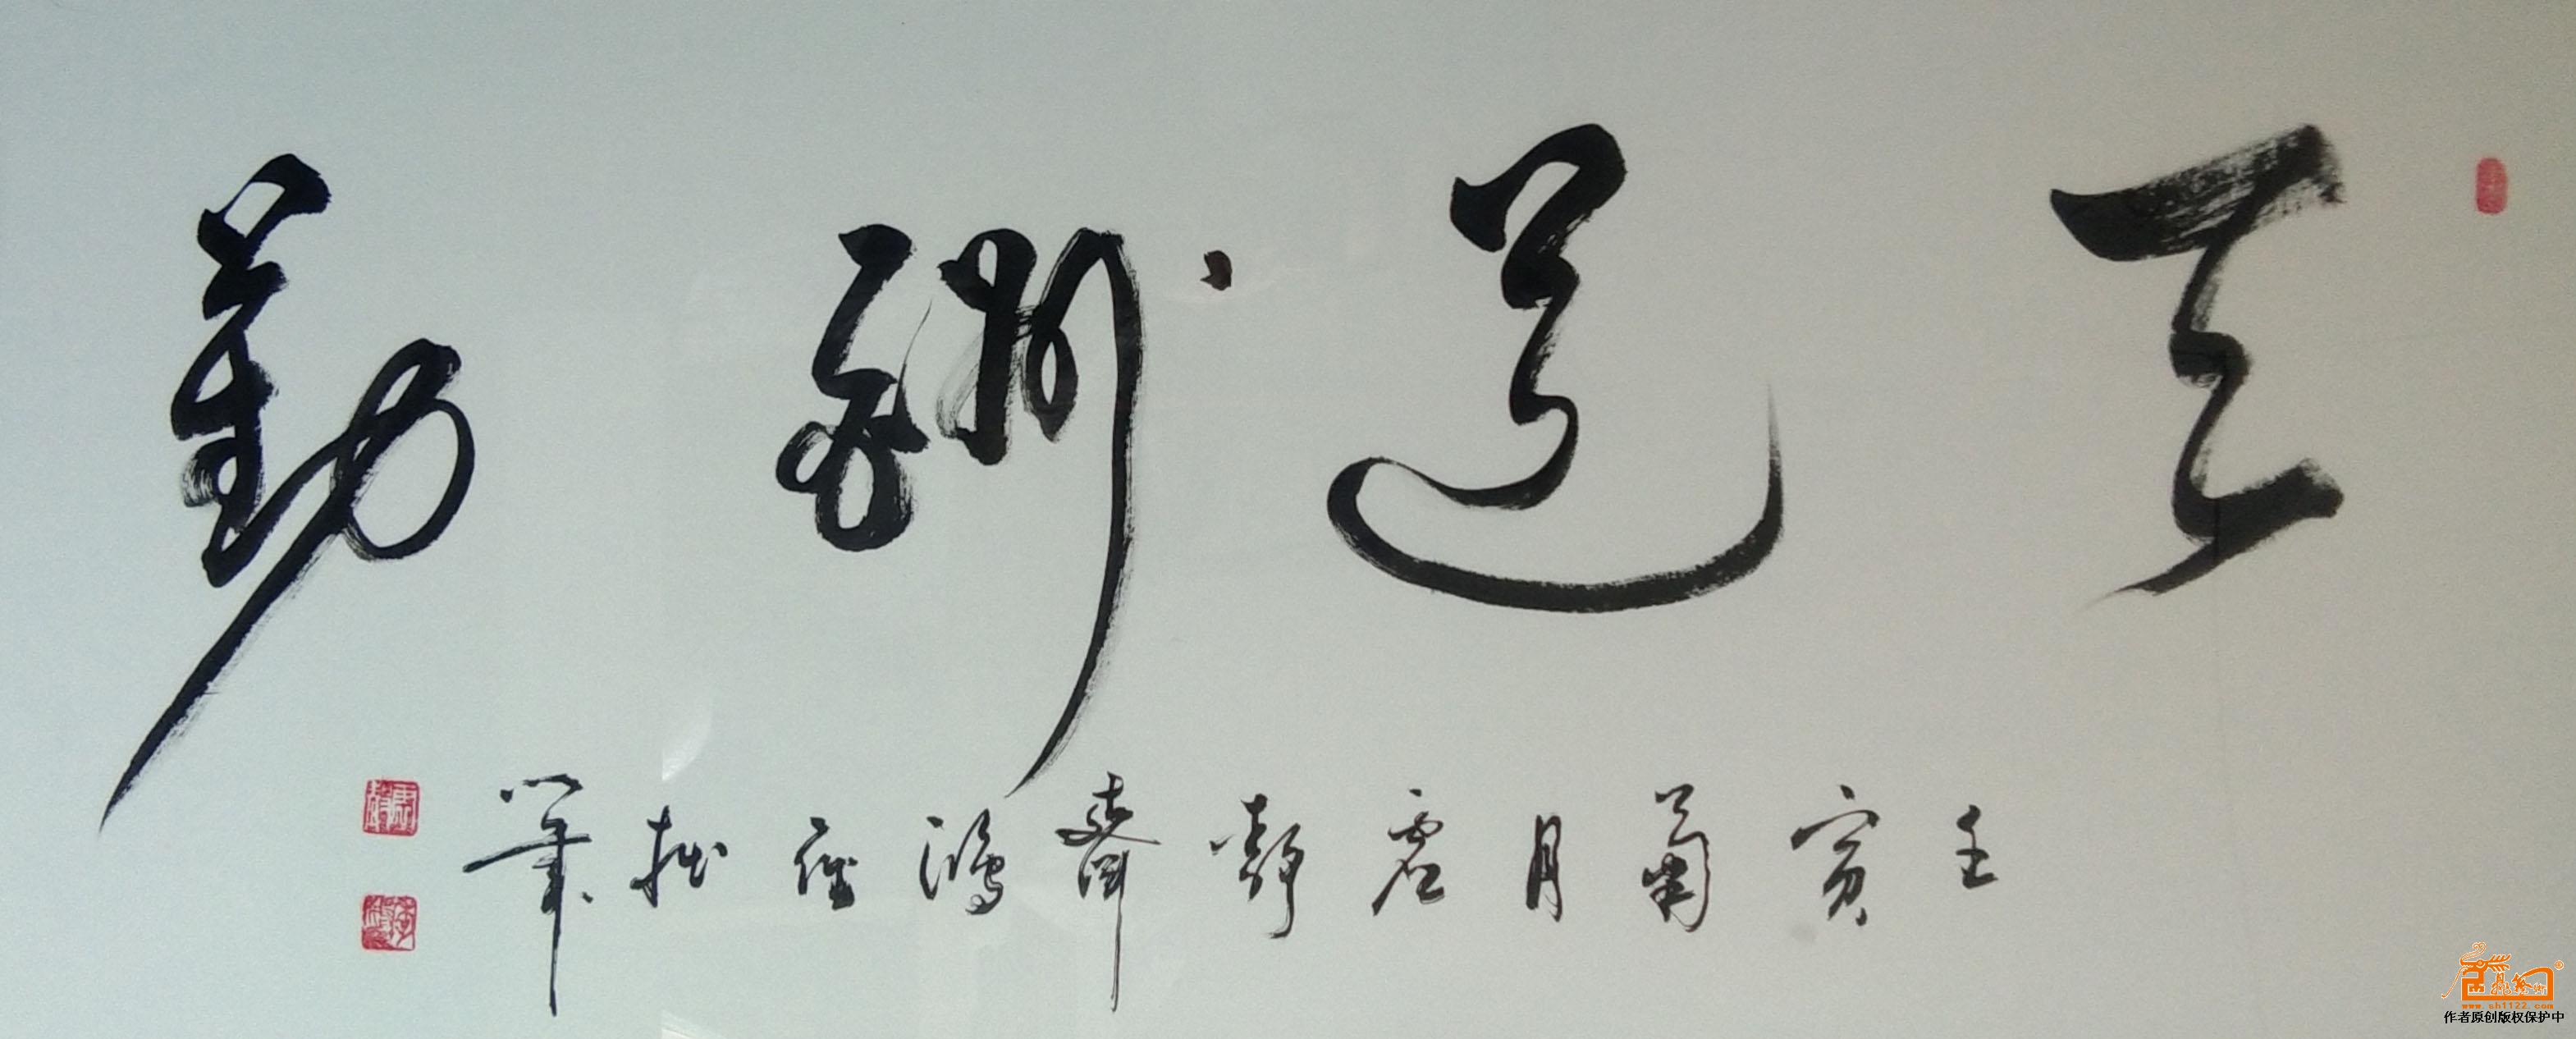 天道酬勤
壬寅菊月虚静斋鸿从拙笔
www.sh1122.com
作者原创版权保护中